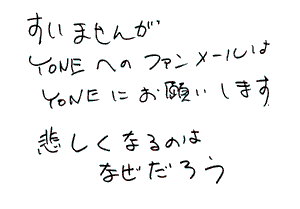 すいませんが
YONEへのファンメールは
YONEにお願いします
悲しくなるのは
なぜだろう